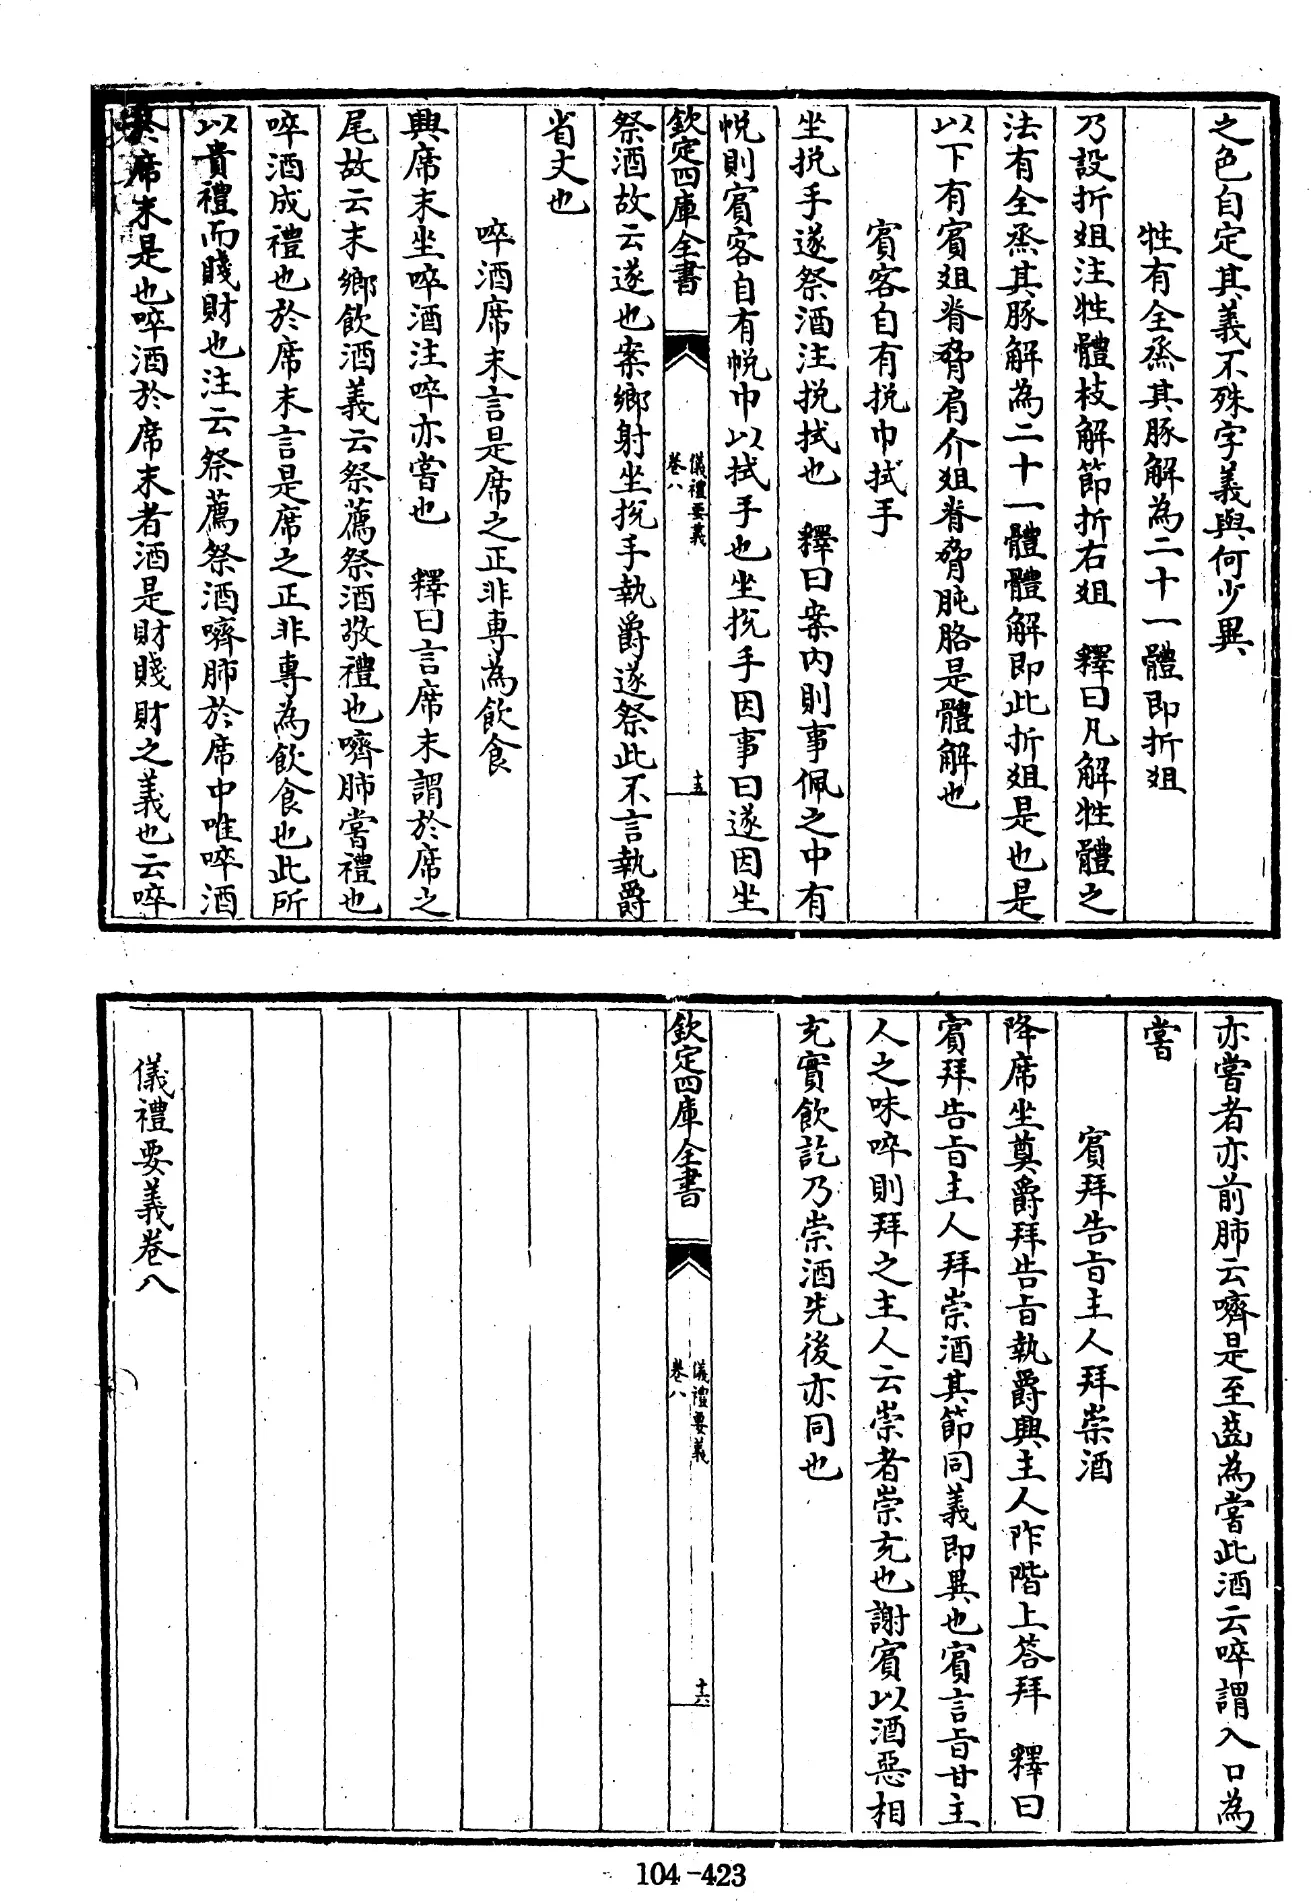 之色自定其義不殊字義與何少異
牲有全烝其豚解為二十一體即折俎
乃設折俎注牲體枝解節折右俎　釋曰凡解牲體之
法有全烝其豚解為二十一體體解即此折俎是也是
以下有賓俎脊脅肩介俎脊脅肫胳是體解也
賓客自有挩巾拭手
坐挩手遂祭酒注挩拭也　釋曰案内則事佩之中有
帨則賓客自有帨巾以拭手也坐挩手因事曰遂因坐
欽定四庫全書
儀禮要義
卷八
十五
祭酒故云遂也案鄉射坐挩手執爵遂祭此不言執爵
省文也
啐酒席末言是席之正非專為飲食
興席末坐啐酒注啐亦嘗也　釋曰言席末謂於席之
尾故云末鄉飲酒義云祭薦祭酒敬禮也嚌肺嘗禮也
啐酒成禮也於席末言是席之正非專為飲食也此所
以貴禮而賤財也注云祭薦祭酒嚌肺於席中唯啐酒
於席末是也啐酒於席末者酒是財賤財之義也云啐
亦嘗者亦前肺云嚌是至齒為嘗此酒云啐謂入口為
嘗
賓拜告旨主人拜崇酒
降席坐奠爵拜告旨執爵興主人阼階上答拜　釋曰
賓拜告旨主人拜崇酒其節同義即異也賓言旨甘主
人之味啐則拜之主人云崇者崇充也謝賓以酒惡相
充實飲訖乃崇酒先後亦同也
欽定四庫全書
儀禮要義
卷八
十六
儀禮要義卷八
104-423